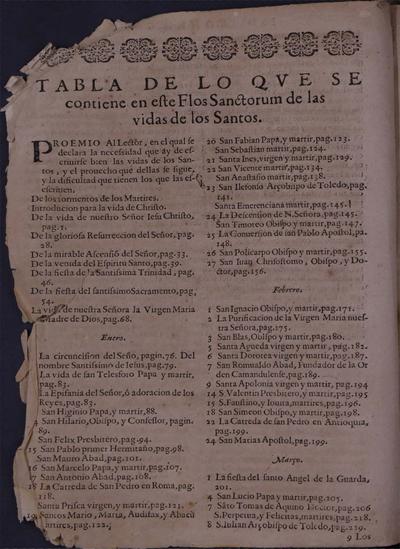 TABLA DE LO QVE SE
contiene en este Flos Sanctorum de las
vidas de los Santos.
PROEMIO Al Lector, en el qual se
declara la necesidad que ay de es-
criuirse bien las vidas de los San-
tos, y el prouecho que dellas se sigue,
y la dificultad que tienen los que las es-
criuen.
De los tormentos de los Martires.
Introduccion para la vida de Christo.
De la vida de nuestro Señor Iesu Christo,
pag.1.
De la gloriosa Resurreccion del Señor, pag.
28.
De la mirable Ascensiõ del Señor, pag.33.
De la venida del Espiritu Santo, pag.39.
De la fiesta de la Santissima Trinidad, pag,
46.
De la fiesta del santissimo Sacramento, pag,
54.
La vida de nuestra Señora la Virgen Maria
Madre de Dios, pag.68.
Enero.
La circuncision del Señor, pagin.76. Del
nombre Santissimo de Iesus, pag.79.
La vida de san Telesforo Papa y martir,
pag.83.
La Epifania del Señor, ò adoracion de los
Reyes, pag.83.
San Higinio Papa y martir, 88.
San Hilario, Obispo, y Confessor, pagin.
89.
San Felix Presbitero, pag.94.
15 San Pablo primer Hermitaño, pag.98.
San Mauro Abad, pag.101.
16 San Marcelo Papa, y martir, pag.107.
17 San Antonio Abad, pag.108.
18 La Catreda de San Pedro en Roma, pag.
118.
Santa Prisca virgen, y martir, pag.121.
19 Santos Mario, Maria, Audifax, y Abacũ
martires, pag.122.
20 San Fabian Papa, y martir, pag.123.
San Sebastian martir, pag.124.
21 Santa Ines, virgen y martir, pag.129.
22 San Vicente martir, pag.134.
San Anastasio martir, pag.138.
23 San Ilefonso Arçobispo de Toledo, pag.
141.
Santa Emerenciana martir, pag.145.
24 La Descension de N. Señora, pag.145.
San Timoteo Obispo y martir, pag.147.
25 La Conuersion de san Pablo Apostol, pa.
148.
26 San Policarpo Obispo y martir, pag.155.
27 San Iuan Chrisostomo, Obispo, y Do-
ctor, pag.156.
Febrero.
1 San Ignacio Obispo, y martir, pag.171.
2 La Purificacion de la Virgen Maria nues-
tra Señora, pag.175.
3 San Blas, Obispo y martir, pag.180.
5 Santa Agueda virgen y martir, pag.182.
6 Santa Dorotea virgen y martir, pag.187.
7 San Romualdo Abad, Fundador de la Or
den Camandulense, pag.189.
9 Santa Apolonia virgen y martir, pag.194
14 S. Valentin Presbitero, y martir, pag.195
15 S. Faustino, y Iouita, martires, pag.196.
18 San Simeon Obispo, y martir, pag.198.
22 La Catreda de san Pedro en Antioquia,
pag.199.
24 San Matias Apostol, pag.199.
Março.
1 La fiesta del santo Angel de la Guarda,
201.
4 San Lucio Papa y martir, pag.205.
7 Sãto Tomas de Aquino Doctor, pag.206
S. Perpetua, y Felicitas, martires, pag.218,
8 S. Iulian Arçobispo de Toledo, pag.219.
9 Los